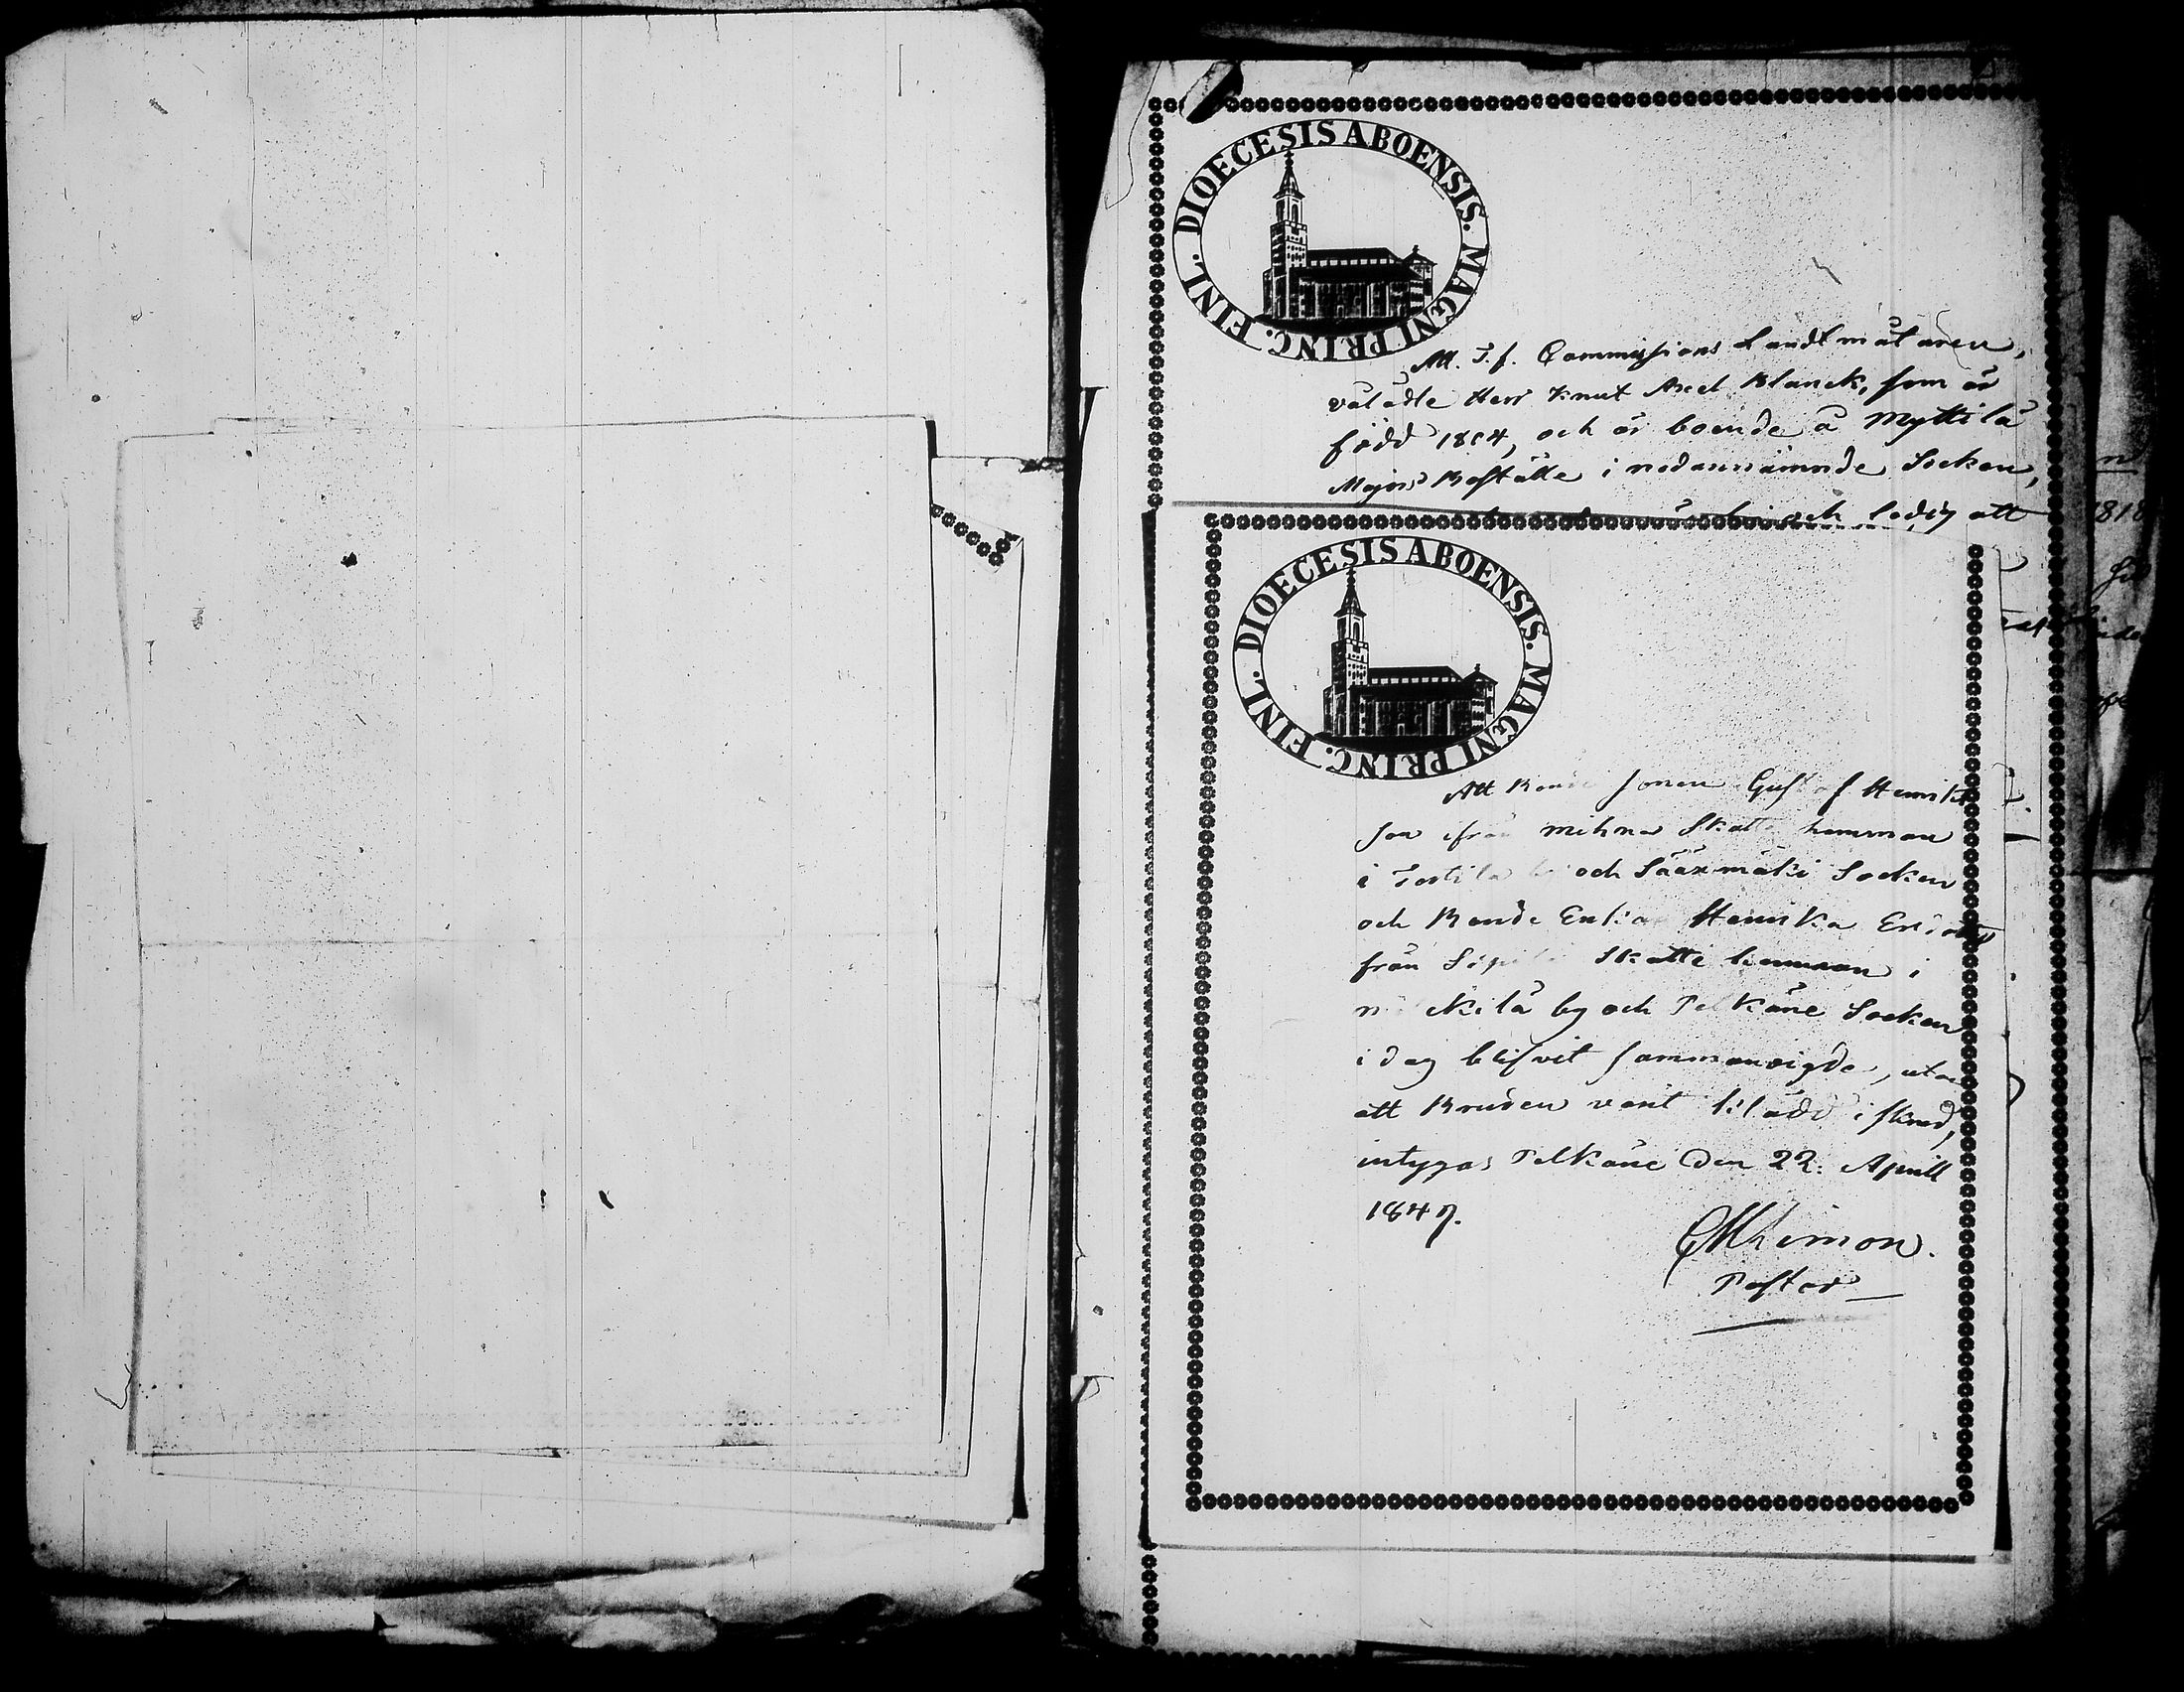 DIOECESIS ABOENSIS. MAGNI PRINC. FINL.
Att. T.f. Commissions Landtmätaren,
välädle Herr Knut Axel Blanck, som är
född 1814, och är boende å Myttilä
Majors Boställe i nedannämnde Socken,
och ledig att
1818
DIOECESIS ABOENSIS. MAGNI PRINC. FINL.
Att Bonde sonen Gustaf Henriks
son ifrån Mihna Skatte hemman
i och Sääxmäki Socken
och Bonde Enka Henrika Ersdotter
från Skatte hemman i
by och Pelkäne Socken
i dag blifvit sammanvigde, utan
att Bruden varit klädd i skrud,
intygas Pelkäne den 22. Aprill
1847.
Pastor